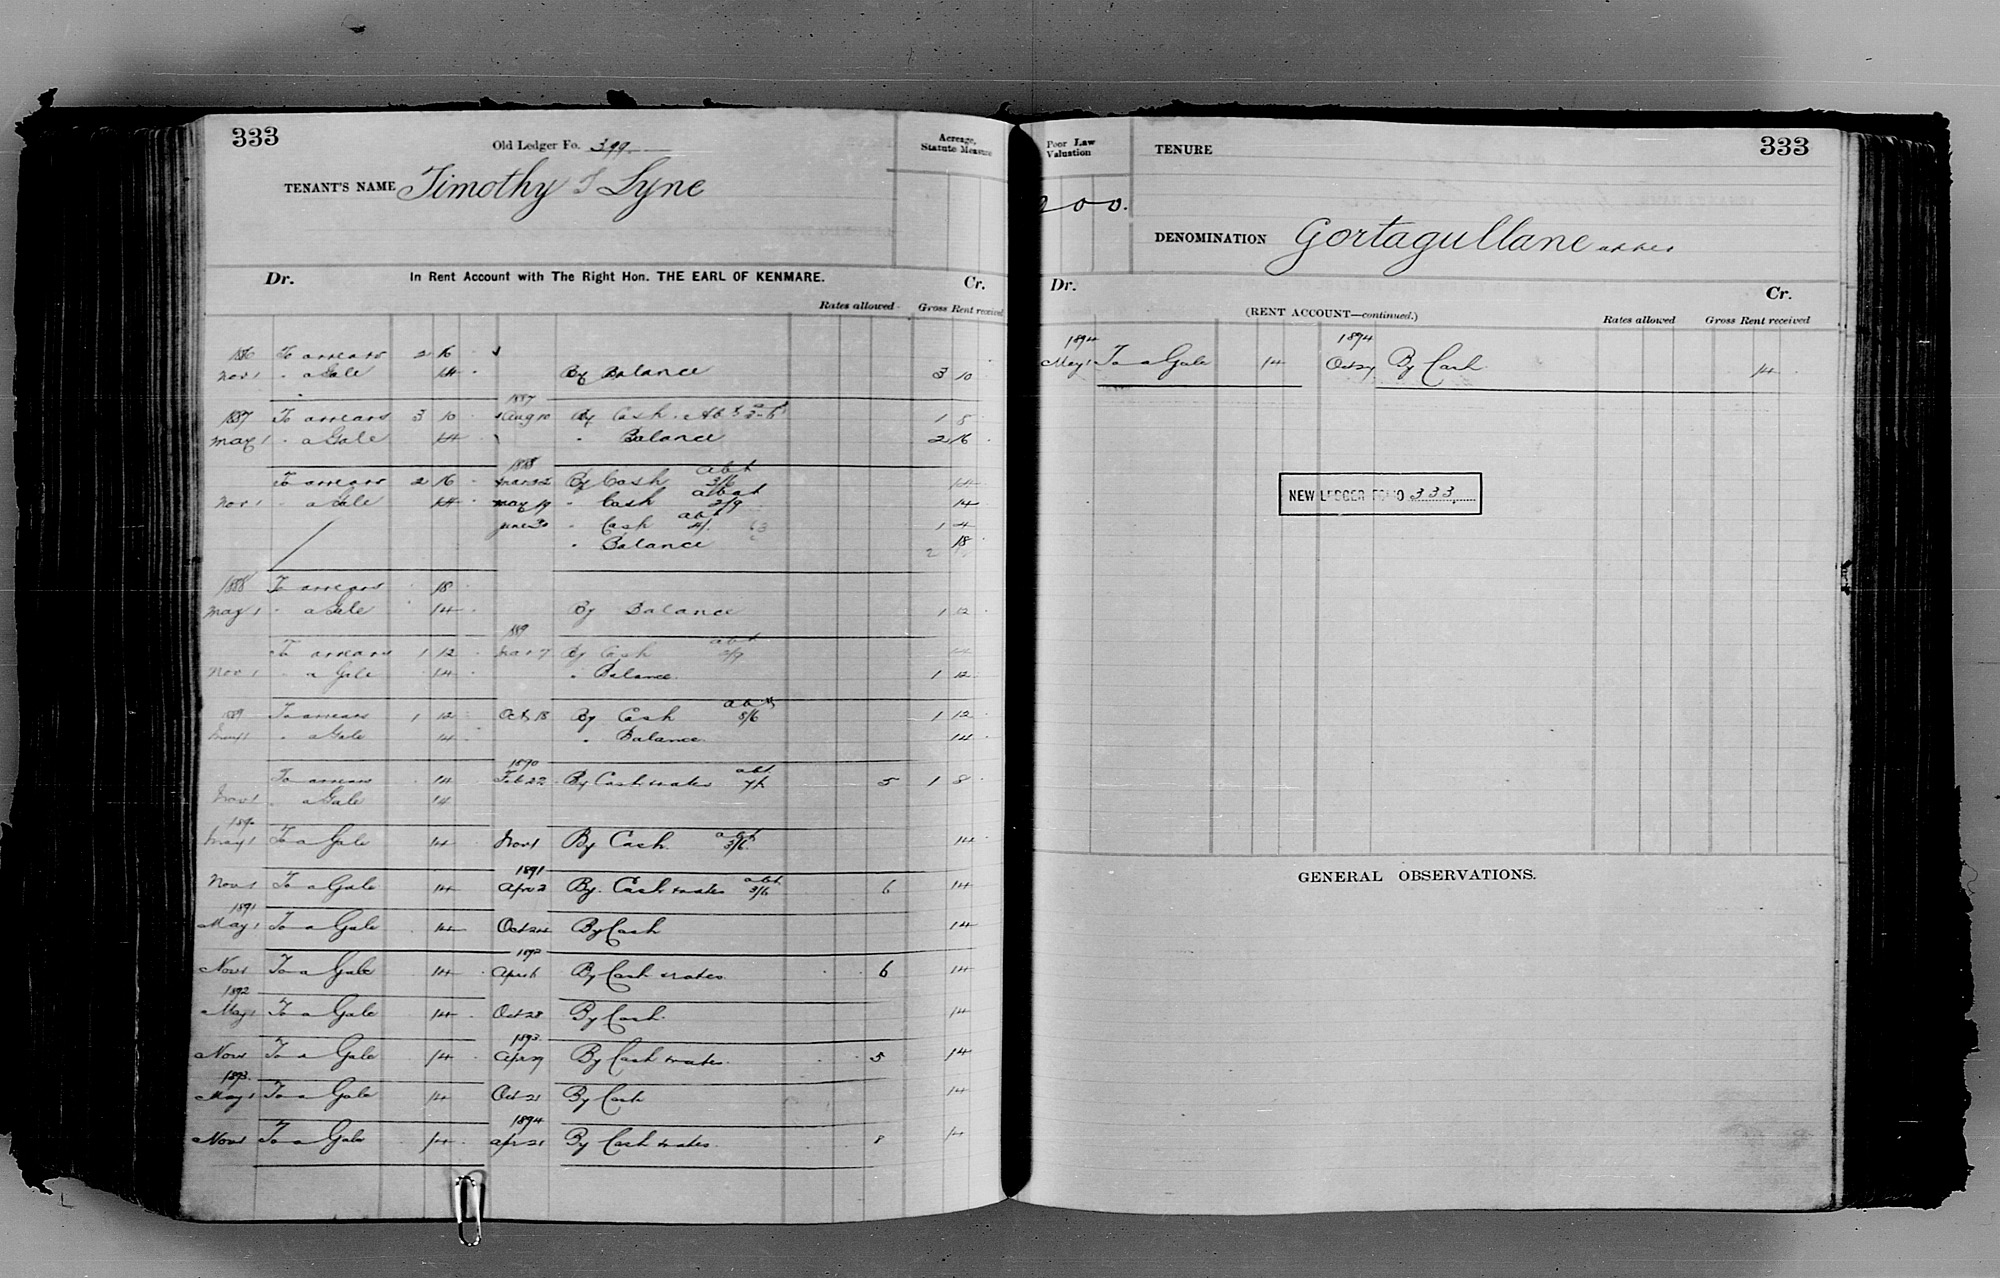 333
Old Ledger Fo. 399
Acreage, Statute Measure
TENANT'S NAME Timothy T Lyne
Dr. In Rent Account with The Right Hon. THE EARL OF KENMARE. Cr.
Rates allowed Gross Rent received
1886 To arrears 2 16
Nov 1 " a Gale 14 By Balance 3 10
1887
1887 To arrears 3 10 Aug 10 By Cash Abt 1 8
May 1 " a Gale 14 " Balance 2 16
1888
To arrears 2 16 Mar 22 By Cash abt 3/6 14
Nov 1 a Gale 14 May 19 " Cash abat 2/9 14
June 30 " Cash abt 4/. 1 4
" Balance 18
1888 To arrears 18
May 1 " a Gale 14 By Balance 1 12
1889
To arrears 1 12 Mar 7 By Cash abt 2/9 14
Nov 1 " a Gale 14 " Balance 1 12
1889 To arrears 1 12 Oct 18 By Cash abt 8/6 1 12
May 1 " a Gale 14 " Balance 14
1890
To arrears 14 Feb 22 By Cash & rates abt 7/- 5 1 8
Nov 1 " a Gale 14
1890
May 1 To a Gale 14 Nov 1 By Cash abt 3/6 14
1891
Nov 1 To a Gale 14 Apr 2 By Cash & rates abt 3/6 6 14
1891
May 1 To a Gale 14 Oct 24 By Cash 14
1892
Nov 1 To a Gale 14 Apr 6 By Cash & rates 6 14
1892
May 1 To a Gale 14 Oct 28 By Cash 14
1893
Nov 1 To a Gale 14 Apr 29 By Cash & rates 5 14
1893
May 1 To a Gale 14 Oct 21 By Cash 14
1894
Nov 1 To a Gale 14 Apr 21 By Cash & rates 8 14
Poor Law Valuation
TENURE
333
DENOMINATION Gortagullane
Dr. Cr.
(RENT ACCOUNT—continued.) Rates allowed Gross Rent received
1894 1894
May 1 To a Gale 14 Oct 27 By Cash 14
NEW LEDGER FOLIO 333
GENERAL OBSERVATIONS.